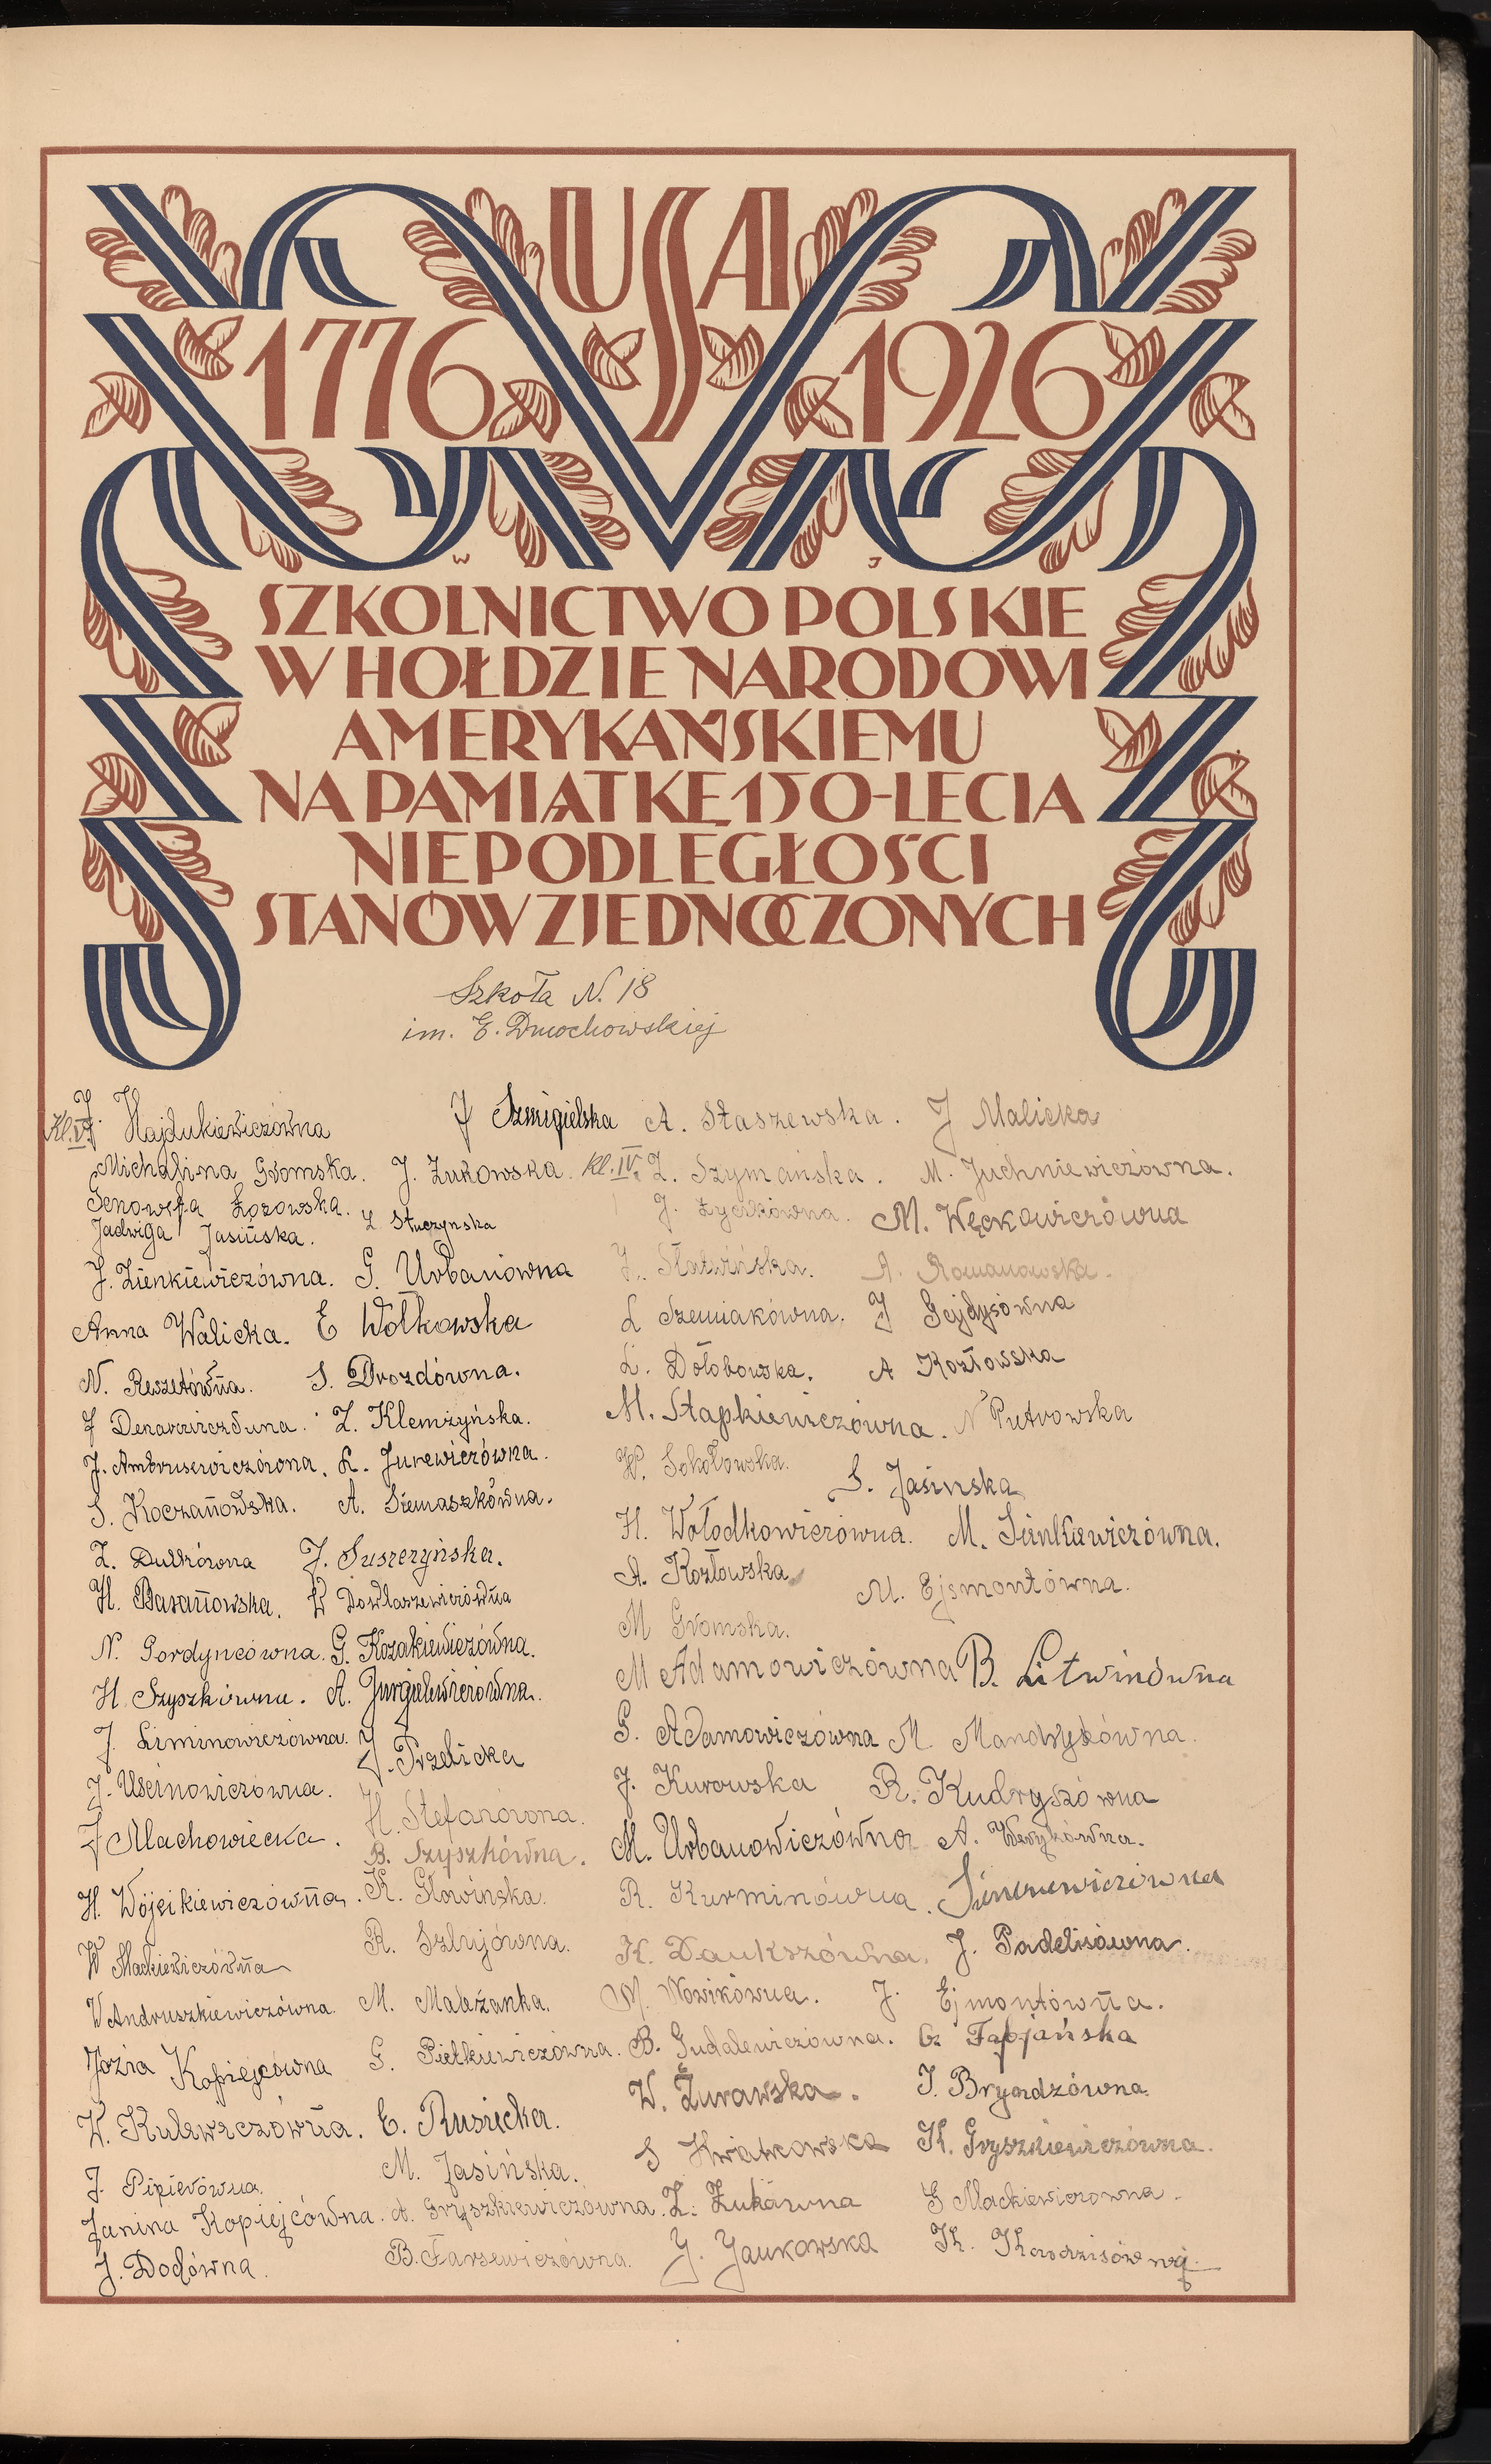 USA
1776 1926
W J
SZKOLNICTWO POLSKIE
W HOŁDZIE NARODOWI
AMERYKAŃSKIEMU
NA PAMIĄTKĘ 150-LECIA
NIEPODLEGŁOŚCI
STANÓW ZJEDNOCZONYCH
Szkoła N. 18
im. E. Dmochowskiej
Kl. V
J. Hajdukiewiczówna
Michalina Gromska.
Genowefa Łozowska.
Jadwiga Jasińska.
J. Zienkiewiczówna.
Anna Walicka.
N. Reszetówna.
J. Ambrusewiczówna.
S. Koczanowska.
Z. Dulkówna
H. Baranowska.
N. Gordyncówna.
H. Szyszkówna.
J. Siminowiczówna.
J. Uscinowiczówna.
J Machowiecka.
H. Wójcikiewiczówna.
W Mackiewiczówna
W Andruszkiewiczówna.
Józia Kopiejcówna
W. Kulewiczówna.
J. Pipierówna.
Janina Kopiejcówna.
J. Dodówna.
J Szmigielska
J. Żukowska.
Z Stuczynska
G. Urbanówna
E Wołkowska
S. Drozdówna.
Z. Klemżyńska.
L. Jurewiczówna.
A. Siemaszkówna.
J. Suszczyńska.
W Dowlaszewiczówna
G. Kozakiewiczówna.
A. Jurgielewiczówna.
J. Trzebicka
H. Stefanówna.
B. Szyszkówna.
K. Głowińska.
R. Szlujówna.
M. Malażanka.
G. Pietkiewiczówna.
E. Rusiecka.
M. Jasińska.
A. Gryszkiewiczówna.
B. Tarsewiczówna.
Kl. IV.
A. Staszewska.
Z. Szymańska.
J. Życikówna.
J. Sławińska.
L Szemiakówna.
L. Dołobowska.
M. Stapkiewiczówna.
W. Sokołowska.
H. Wołodkowiczówna.
A. Kozłowska
M Gromska.
M Adamowiczówna
G. Adamowiczówna
J. Kurowska
M. Urbanowiczówna
R. Kurminówna.
K. Daukszówna.
M. Nowikówna.
B. Gudalewiczówna.
W. Żurawska.
S Kwiatkowska
Z. Żukówna
J. Jankowska
J Malicka
M. Juchniewiczówna.
M. Węckowiczówna
A. Romanowska.
J Gejdysówna
A Kozłowska
N Piotrowska
S. Jasinska
M. Sienkiewiczówna.
M. Ejsmontówna.
B. Litwinówna
M. Mandrykówna.
R. Kudryszówna
A. Wasykówna.
Sienkiewiczówna
J. Padelisówna.
J. Ejmontówna.
G. Fabjańska
J. Bryandzówna.
K. Gryszkiewiczówna.
G Mackiewiczówna.